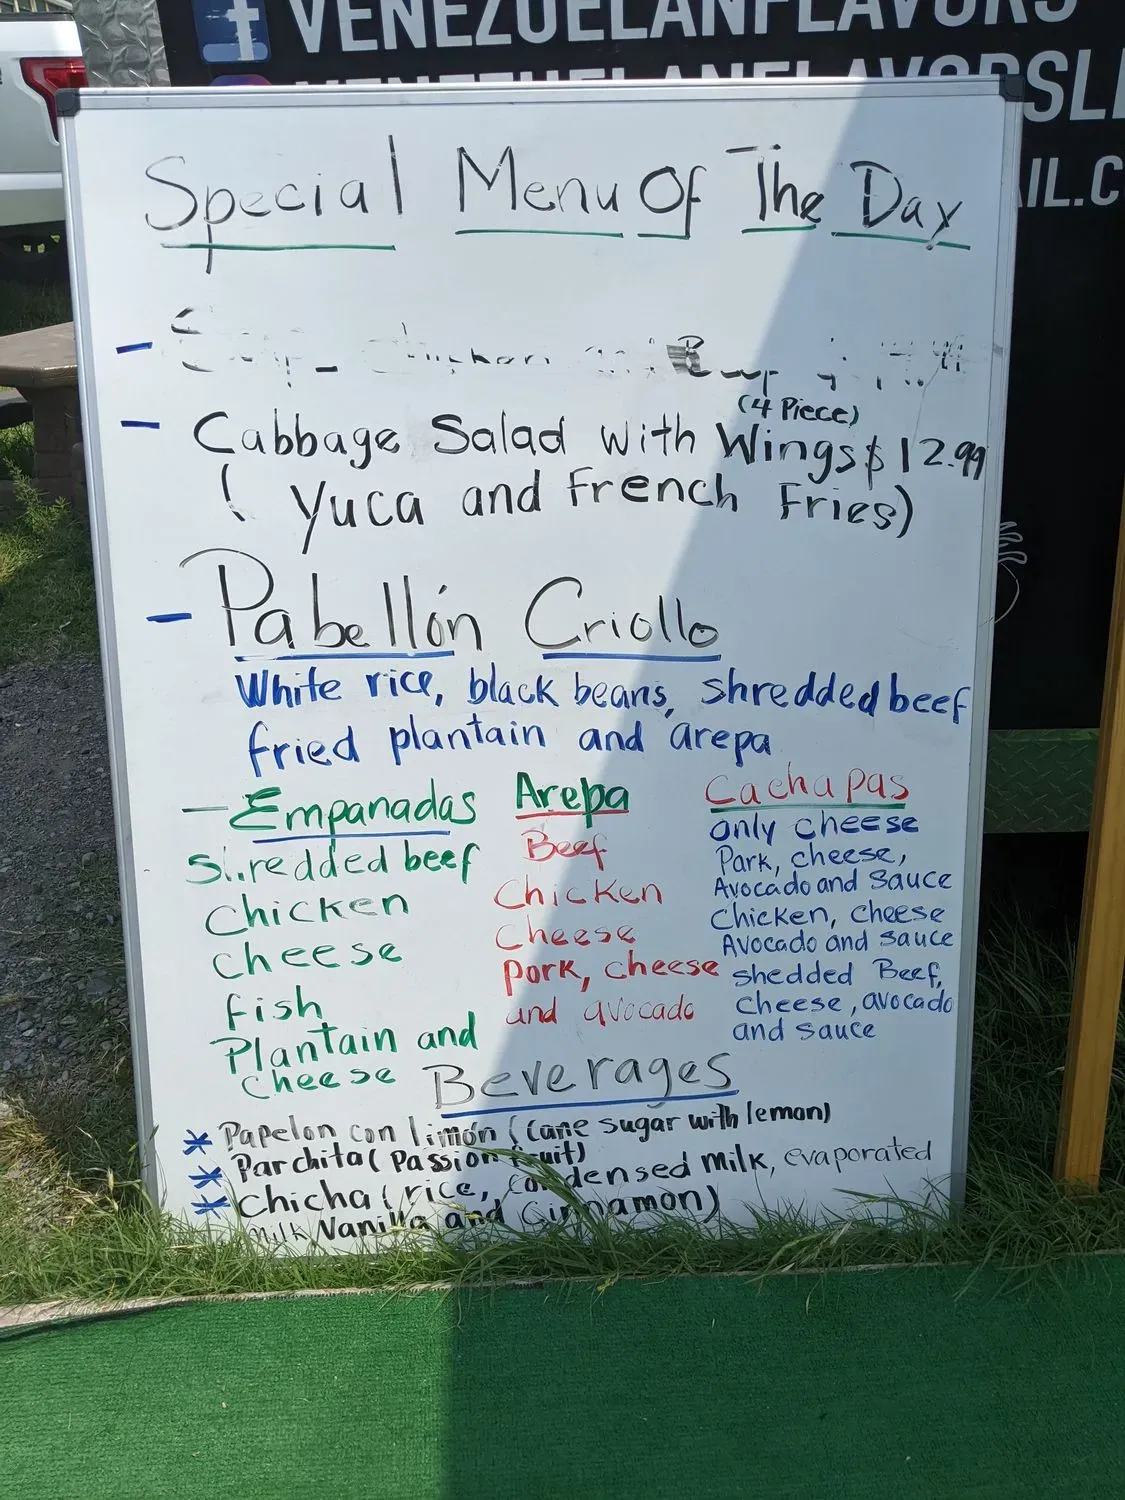 VENEZUELANFLAVORS
Special Menu Of The Day
- Chicken
- Cabbage Salad with Wings $12.99
(4 Piece)
( Yuca and French Fries)
- Pabellón Criollo
White rice, black beans, shredded beef
fried plantain and arepa
- Empanadas
Shredded beef
Chicken
cheese
fish
Plantain and
cheese
Arepa
Beef
Chicken
Cheese
Pork, cheese
and avocado
Cachapas
only cheese
Park, cheese,
Avocado and sauce
Chicken, cheese
Avocado and sauce
shedded Beef,
cheese, avocado
and sauce
Beverages
* Papelon con limón (cane sugar with lemon)
* Parchita (Passion Fruit)
* Chicha (rice, condensed milk, evaporated
milk, Vanilla and Cinnamon)